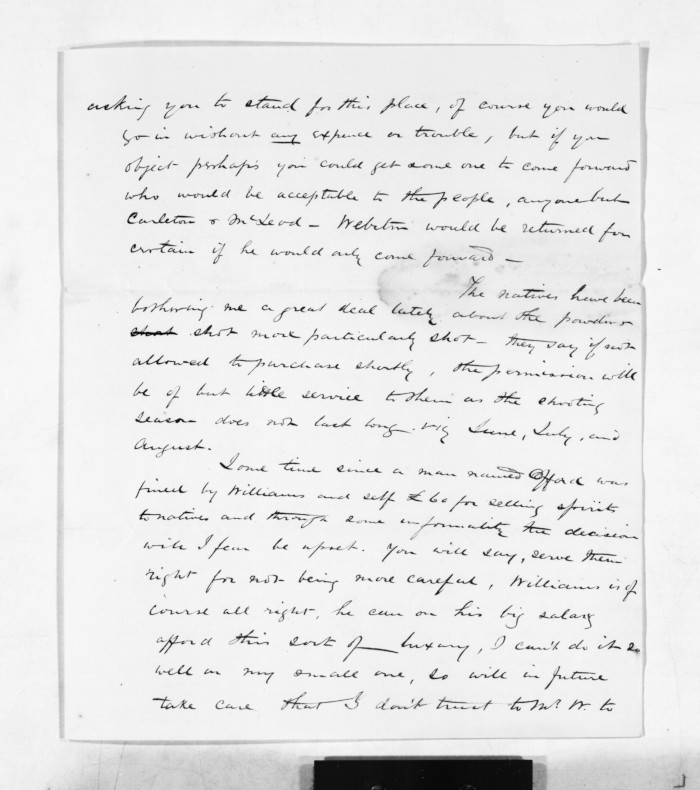 asking you to stand for this place, of course you would
go in without any expence or trouble, but if you
object perhaps you could get some one to come forward
who would be acceptable to the people, anyone but
Carleton & McLeod - Webster would be returned for
certain if he would only come forward -
The natives have been
bothering me a great deal lately about the powder &
shot shot more particularly shot - they say if not
allowed to purchase shortly, the permission will
be of but little service to them as the shooting
season does not last long. viz June, July, and
August.
Some time since a man named Offord was
fined by Williams and self £60 for selling spirits
to natives and through some informality the decision
will I fear be upset. You will say, serve them
right for not being more careful, Williams is of
course all right, he can on his big salary
afford this sort of luxury, I can't do it so
well on my small one, so will in future
take care that I don't trust to Mr. W. to